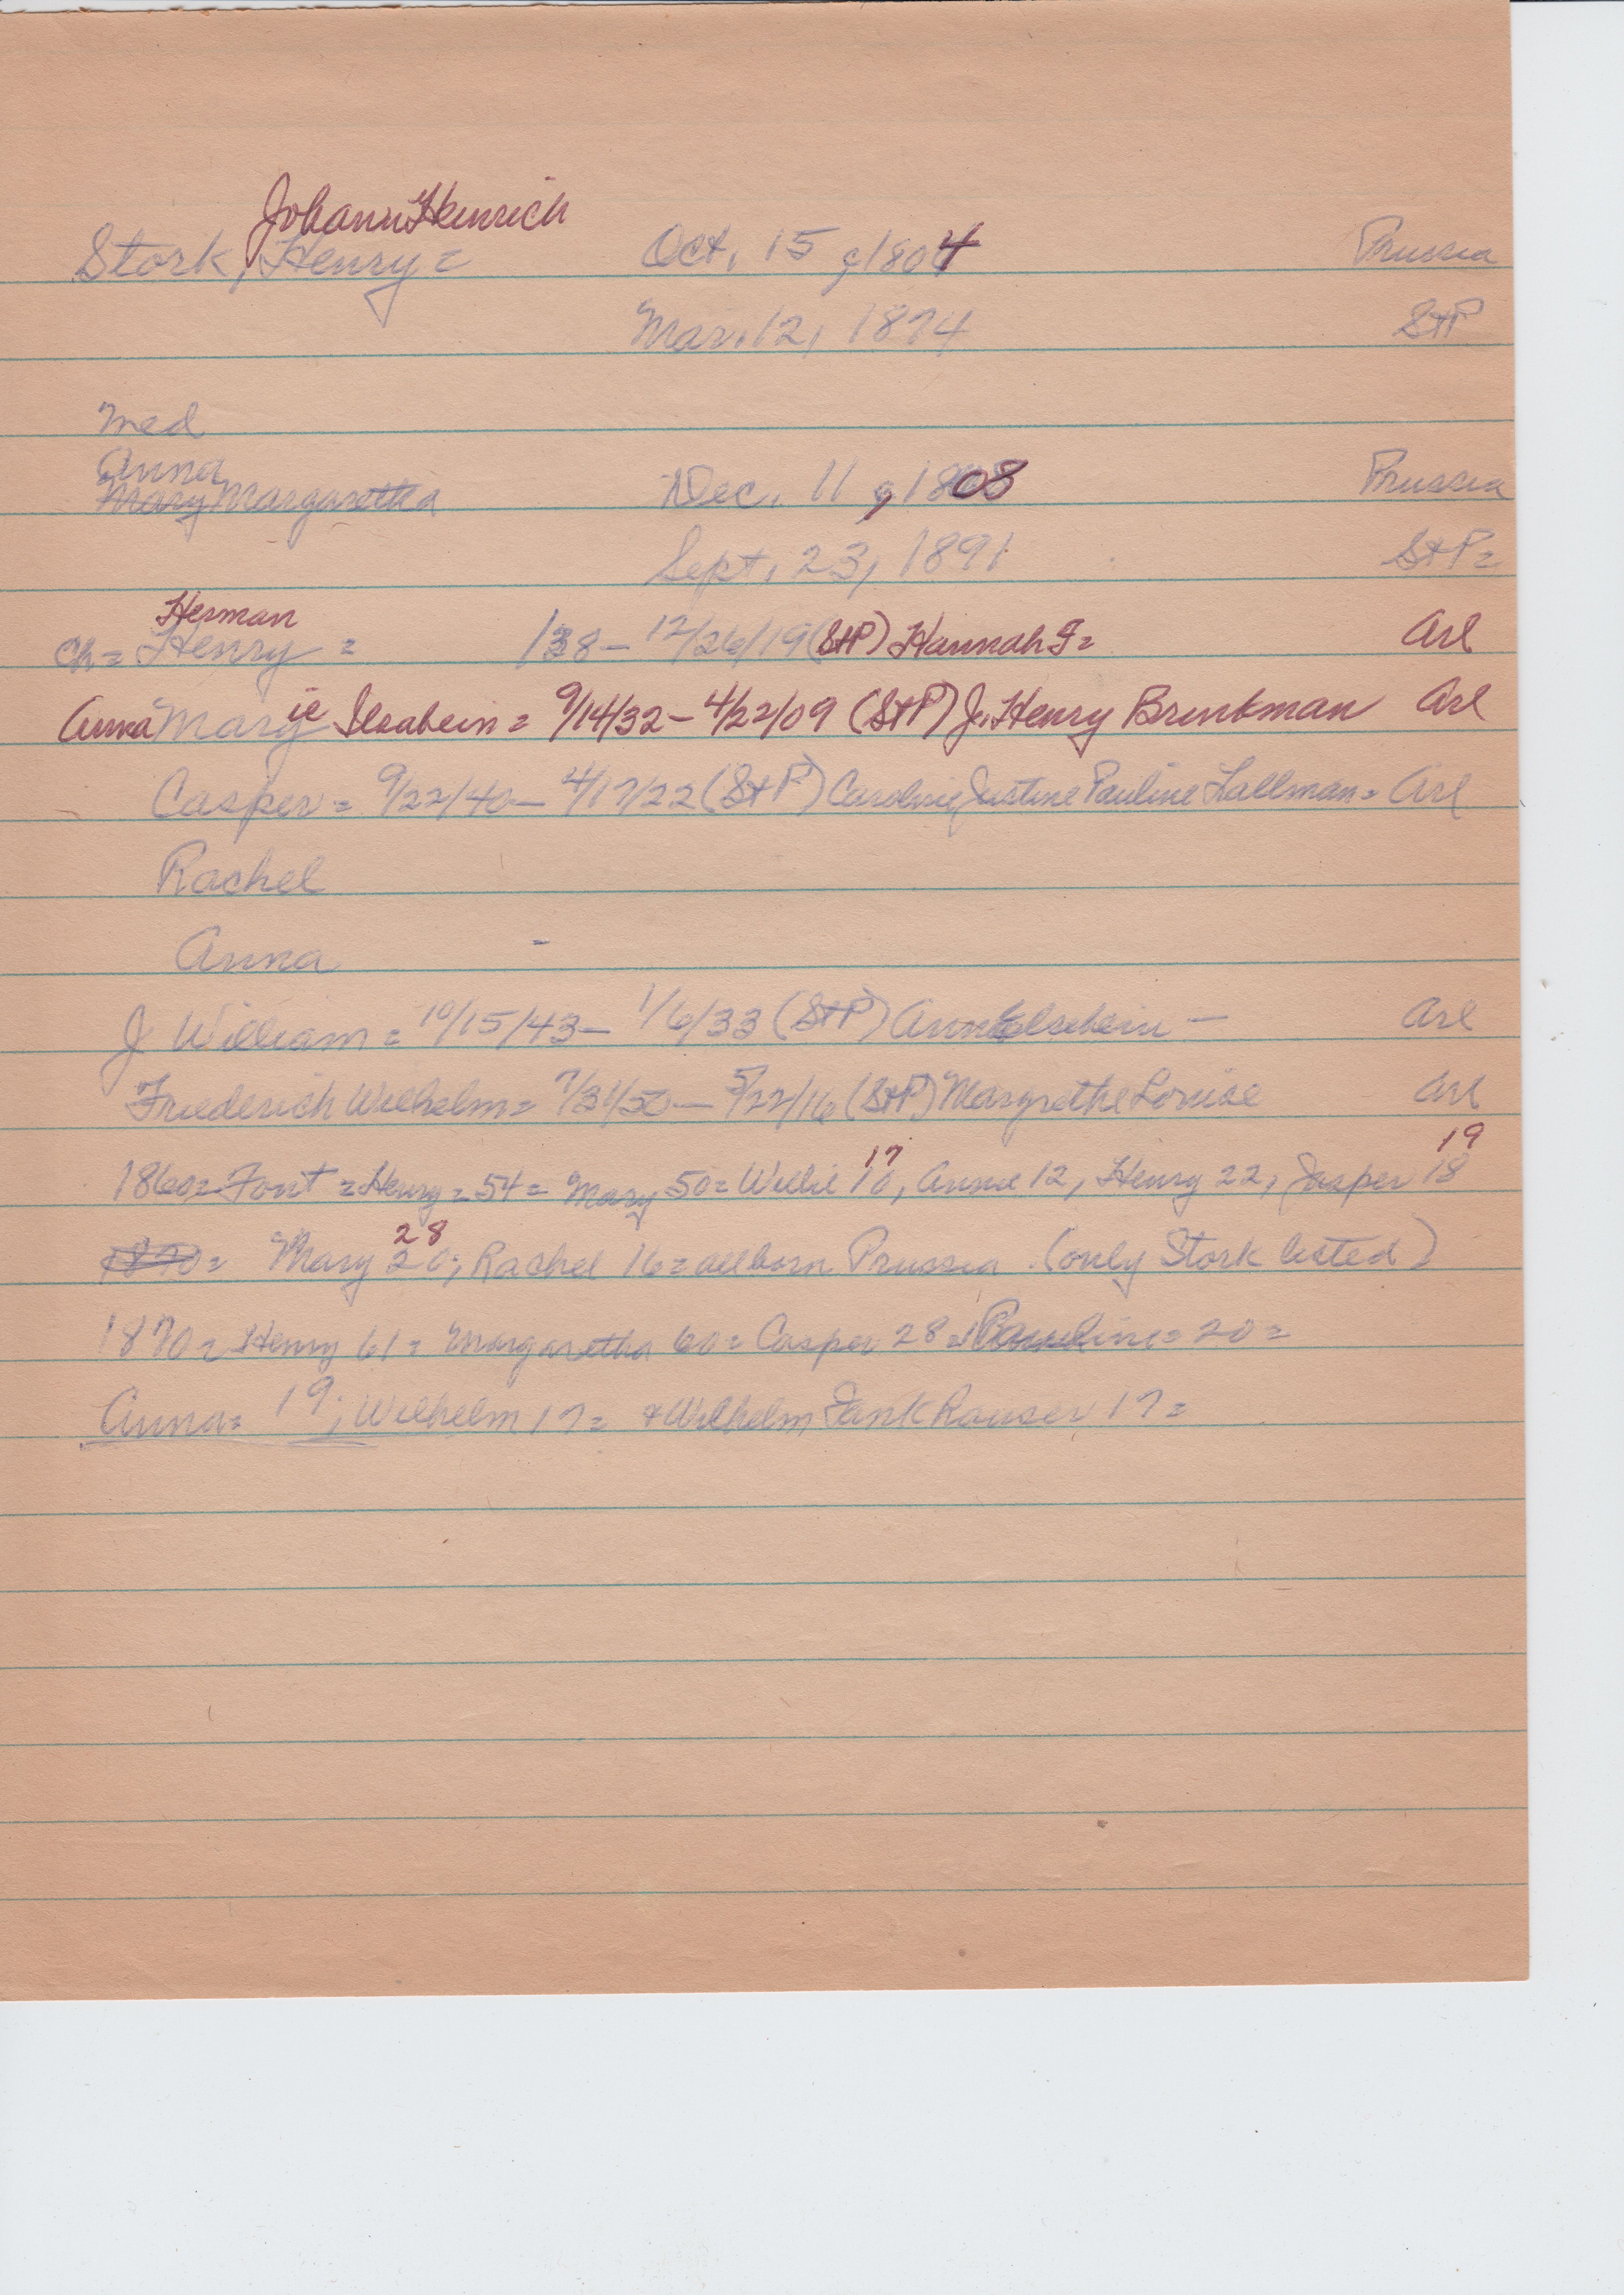 Johann Heinrich
Stork, Henry = Oct. 15, 1804 Prussia
Mar. 12, 1874 StP
med
Anna
Mary Margaretha Dec. 11, 1808 Prussia
Sept. 23, 1891 StP=
Herman
Ch = Henry = /38 – 12/26/19 (StP) Hannah F= Arl
Anna Marie Ilsabein = 9/14/32 – 4/22/09 (StP) J. Henry Brinkman Arl
Casper = 9/22/40 – 4/17/22 (StP) Caroline Justine Pauline Lallman = Arl
Rachel
Anna -
J William = 10/15/43 – 1/6/33 (StP) Ann Elschein – Arl
Friederich Wilhelm = 7/31/50 – 5/22/16 (StP) Margrethe Louise Arl
17 19
1860 = Font = Henry = 54 = Mary 50 = Willie 16, Annie 12, Henry 22, Jasper 18
28
1870 = Mary 20; Rachel 16 = all born Prussia. (only Stork listed)
1870 = Henry 61 = Margaretha 60 = Casper 28 = Pauline = 20 =
Anna = 19; Wilhelm 17 = + Wilhelm FankHauser 17 =